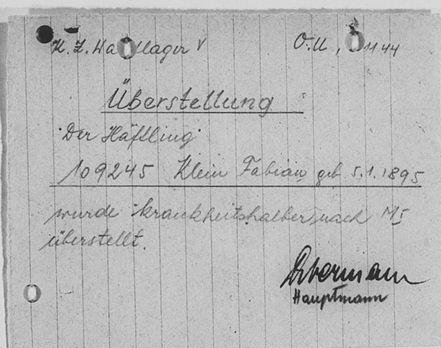 K. Z. Waldlager V O.U., 44
Überstellung
Der Häftling
109245 Klein Fabian geb 5.1.1895
wurde krankheitshalber nach M I
überstellt.
Hauptmann